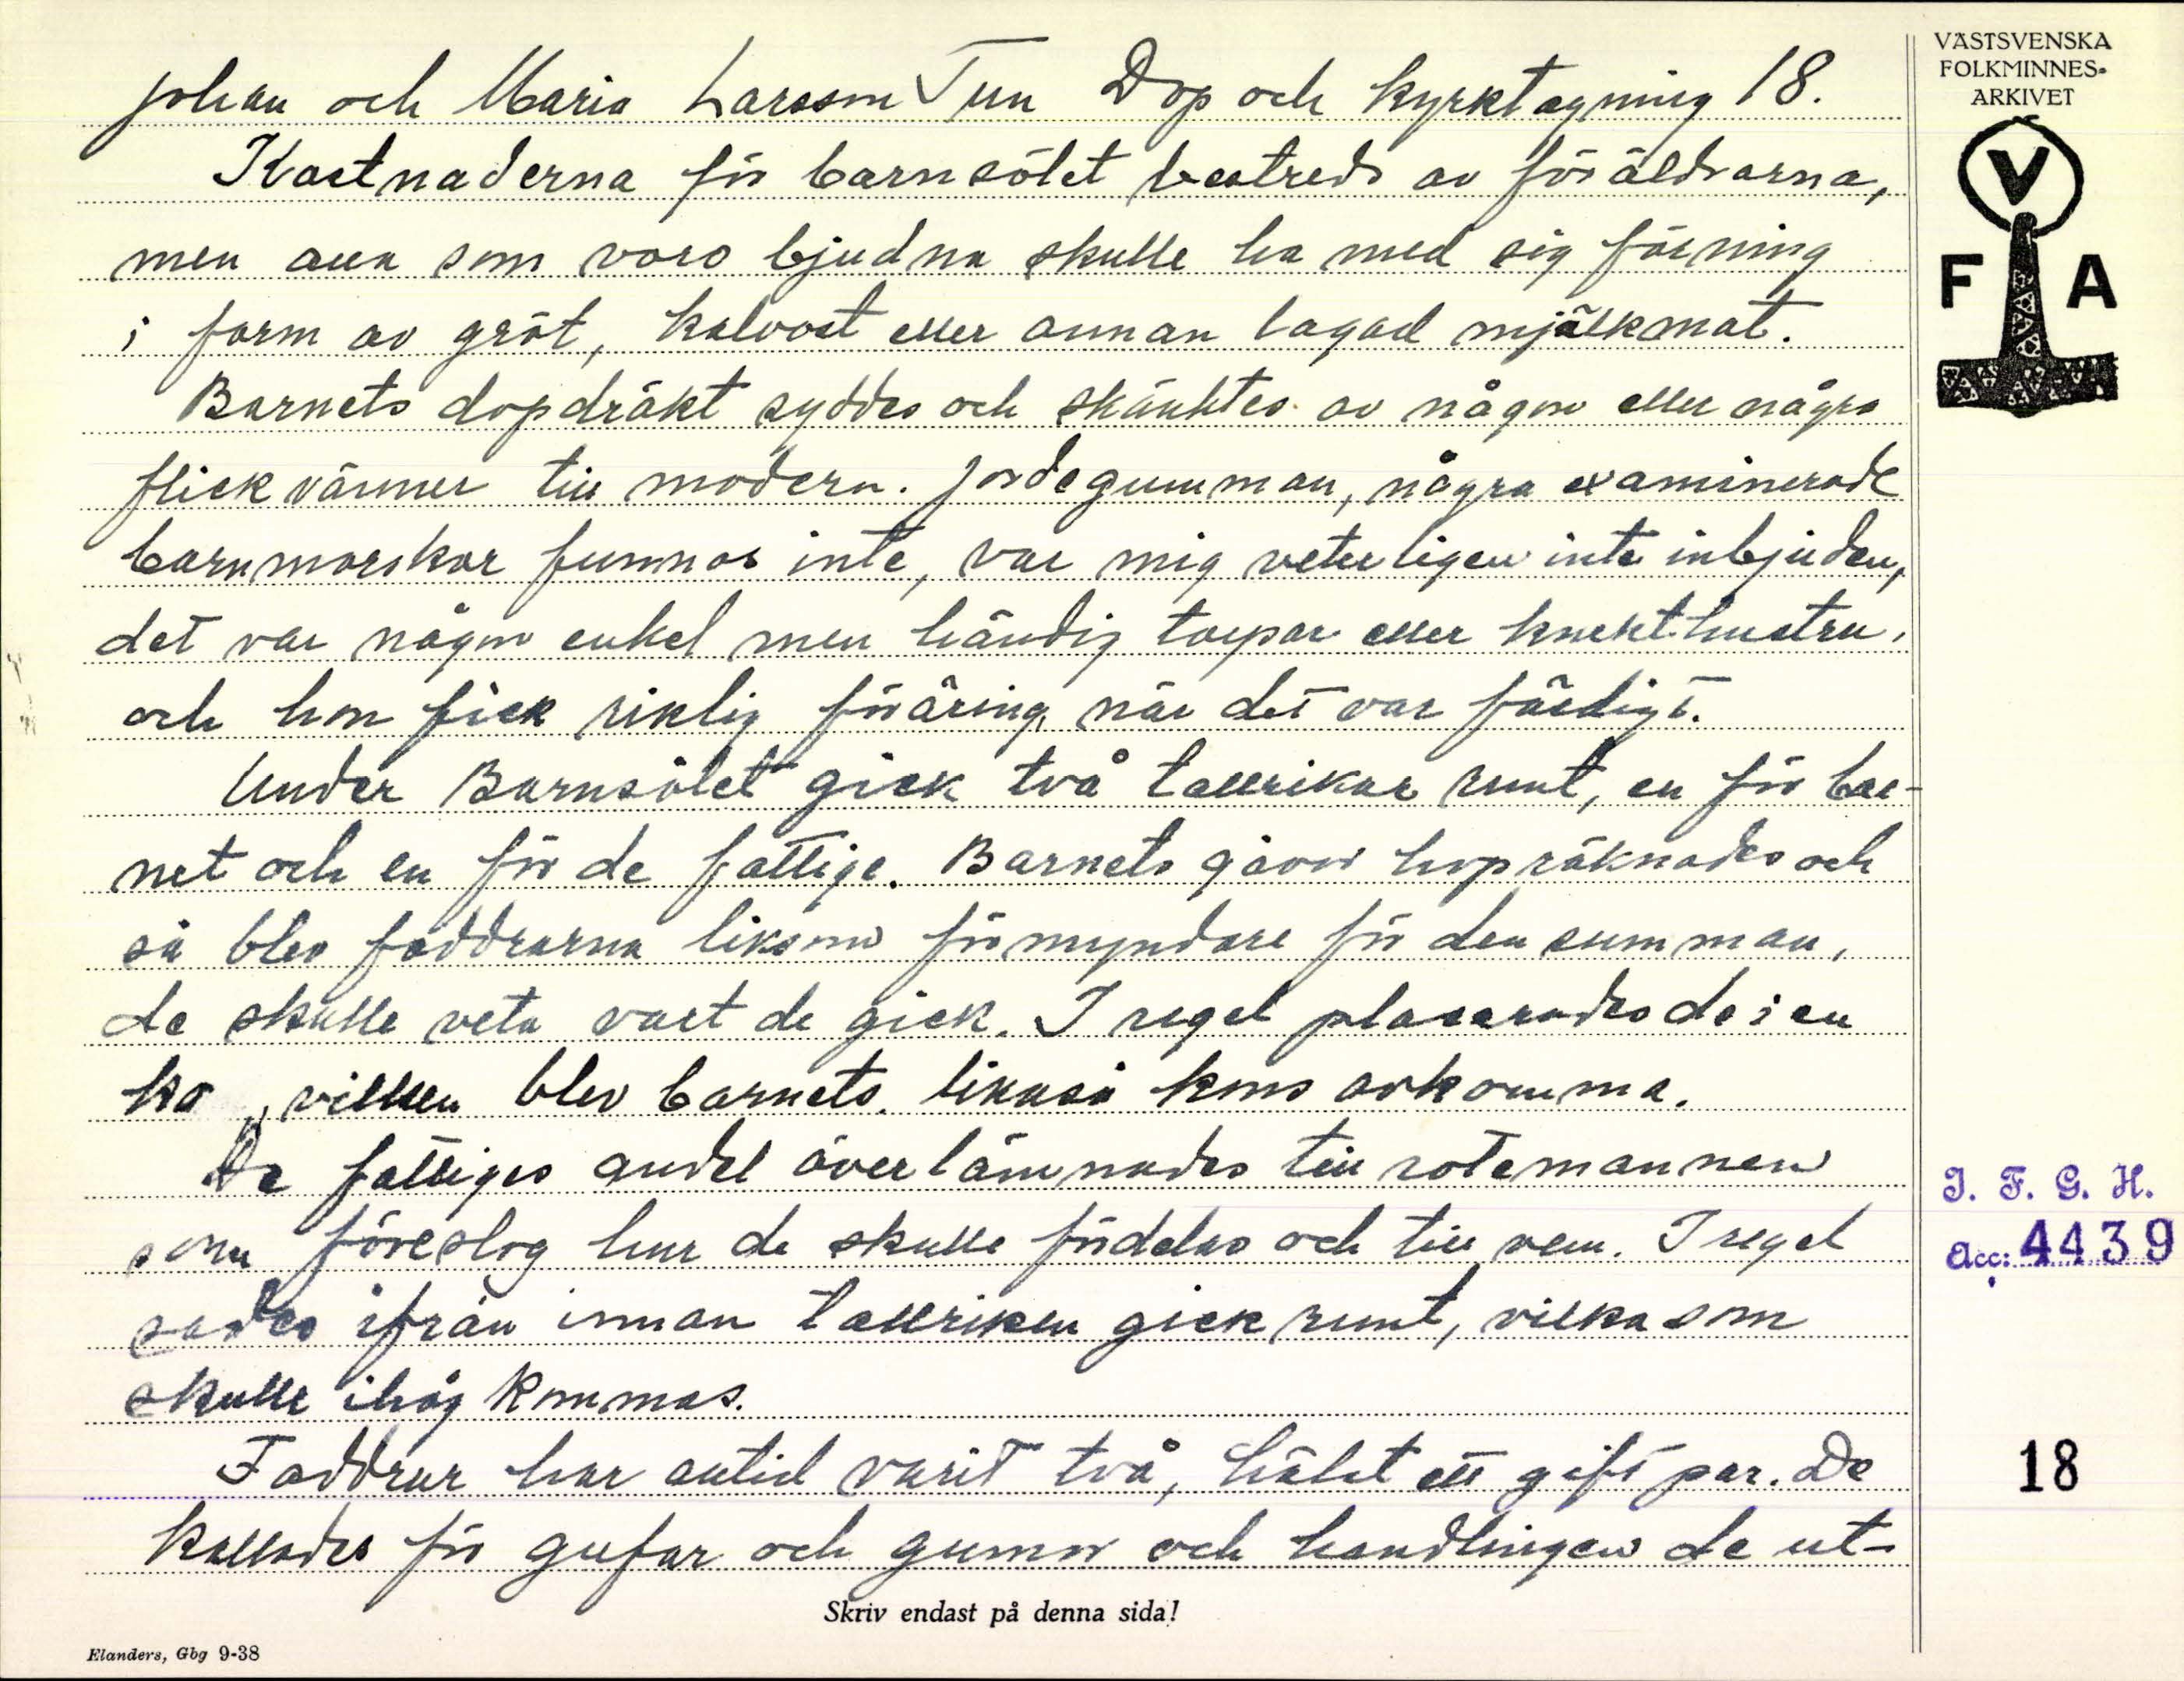 Johan och Maria Larsson Tun Dop och kyrktagning 18.
Kostnaderna för barnsölet bestreds av föräldrarna,
men alla som voro bjudna skulle ha med sig förning
i form av gröt, kalvost eller annan lagad mjälkmat.
Barnets dopdräkt syddes och skänktes av någon eller några
flickvänner till modern. Jordegumman, några examinerade
barnmorskor funnos inte, var mig veterligen inte inbjuden,
det var någon enkel men händig torpar eller knekthustru,
och hon fick riklig föräring när det var färdigt.
Under Barnsölet gick två tallrikar runt, en för bar-
net och en för de fattige. Barnets gåvor hopräknades och
så blev faddrarna liksom förmyndare för den summan,
de skulle veta vart de gick. I regel placerades de i en
ko, vilken blev barnets likaså kons avkomma.
De fattiges andel överlämnades till rotemannen
som föreslog hur de skulle fördelas och till vem. I regel
sades ifrån innan tallriken gick runt, vilka som
skulle ihåg kommas.
Faddrar har alltid varit två, hälst ett gift par. De
kallades för gufar och gumor och handlingen de ut-
Skriv endast på denna sida!
Elanders, Gbg 9-38
VÄSTSVENSKA
FOLKMINNES-
ARKIVET
V
F A
I. F. G. H.
Acc: 4439
18